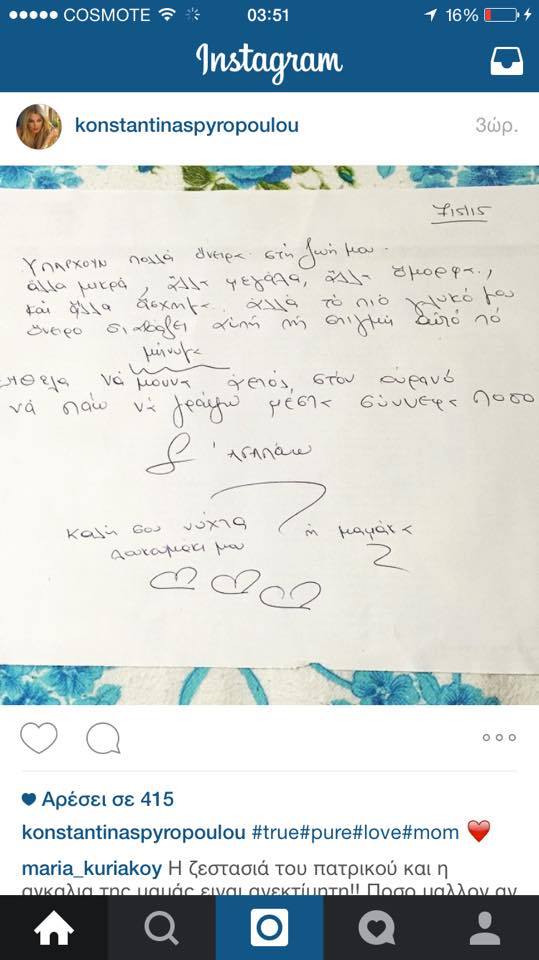 COSMOTE 03:51 16%
Instagram
konstantinaspyropoulou 3ώρ.
7/5/15
ΥΠΑΡΧΟΥΝ πολλά όνειρα στη ζωή μου.
άλλα μικρά, άλλα μεγάλα, άλλα όμορφα,
και άλλα άσχημα αλλά το πιό γλυκό μου
όνειρο αυτή τη στιγμή αυτό τό
μήνυμα
ήθελα νά μουνα αετός στόν ουρανό
νά πάω νά γράψω μέσα σύννεφα πόσο
Σ' ΑΓΑΠΑω
καλή σου νύχτα
η μαμάκα
μου
Αρέσει σε 415
konstantinaspyropoulou #true#pure#love#mom ❤️
maria_kuriakoy Η ζεστασιά του πατρικού και η
αγκαλια της μαμάς ειναι ανεκτίμητη!! Ποσο μαλλον αν